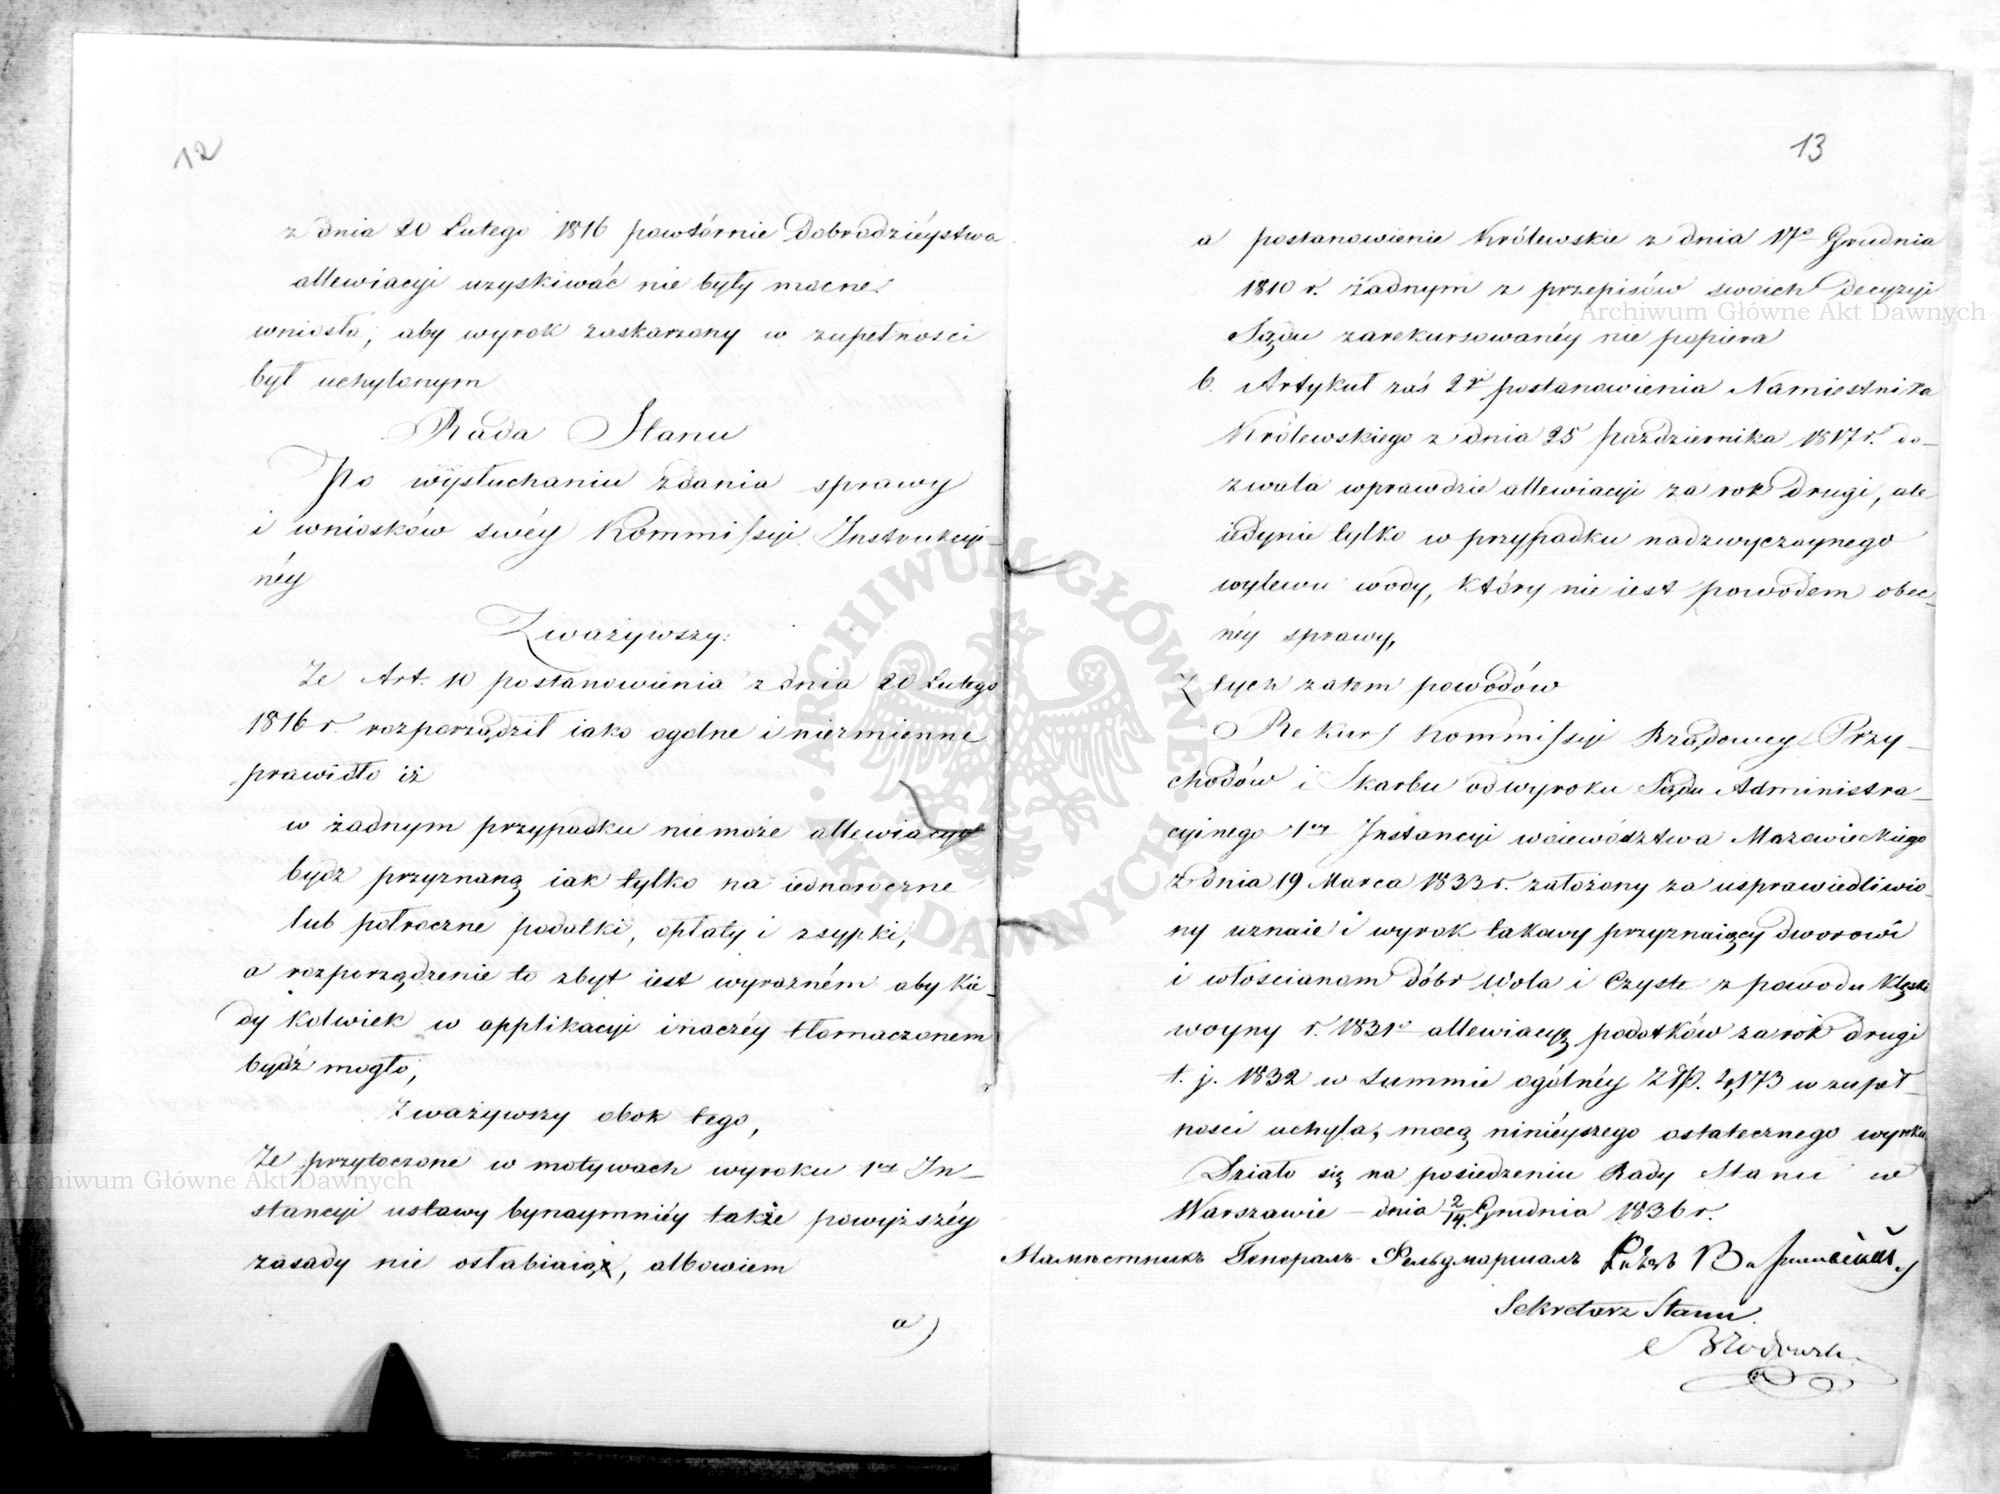 12
z dnia 20 Lutego 1816 powtórnie dobrodziéystwa
allewiacyi uzyskiwać nie były mocne.
wniosła, aby wyrok zaskarżony w zupełności
był uchylonym
Rada Stanu
Po wysłuchaniu zdania sprawy
i wniosków swéy Kommissyi Instrukcyi-
néy
Zważywszy:
Że Art. 10 postanowienia z dnia 20 Lutego
1816 r. rozporządził iako ogolne i niezmienne
prawidło iż
w żadnym przypadku nie może allewiacya
bydź przyznaną iak tylko na iednoroczne
lub półroczne podatki, opłaty i zsypki,
a rozporządzenie to zbyt iest wyraźném aby kie-
dykolwiek w applikacyi inaczéy tłomaczonem
bydź mogło;
Zważywszy obok tego,
Że przytoczone w motywach wyroku 1éy In-
stancyi ustawy bynaymniéy także powyższéy
zasady nie osłabiaią, albowiem
a)
13
a postanowienie Królewskie z dnia 17º Grudnia
1810 r. żadnym z przepisów swoich decyzyi
Sądu zarekursowanéy nie popiera
b. Artykuł zaś 2i postanowienia Namiestnika
Królewskiego z dnia 25 października 1817 r. do-
zwala wprawdzie allewiacyi za rok drugi, ale
iedynie tylko w przypadku nadzwyczaynego
wylewu wody, który nie iest powodem obec-
néy sprawy,
Z tych zatem powodów
Rekurs Kommissyi Rządowey Przy-
chodów i Skarbu od wyroku Sądu Administra-
cyinego 1éy Instancyi woiewództwa Mazowieckiego
z dnia 19 Marca 1833 r. założony za usprawiedliwio-
ny uznaie i wyrok takowy przyznaiący dworowi
i włościanom dóbr Wola i Czyste z powodu klęski
woyny r. 1831º allewiacyą podatków za rok drugi
t. j. 1832 w summie ogólnéy Złp. 2,173 w zupeł-
ności uchyla, mocą ninieyszego ostatecznego wyroku
Działo się na posiedzeniu Rady Stanu w
Warszawie dnia 2/14 Grudnia 1836 r.
Намѣстникъ Генералъ-Фельдмаршалъ
Sekretarz Stanu.
Archiwum Główne Akt Dawnych
Archiwum Główne Akt Dawnych
ARCHIWUM GŁÓWNE AKT DAWNYCH